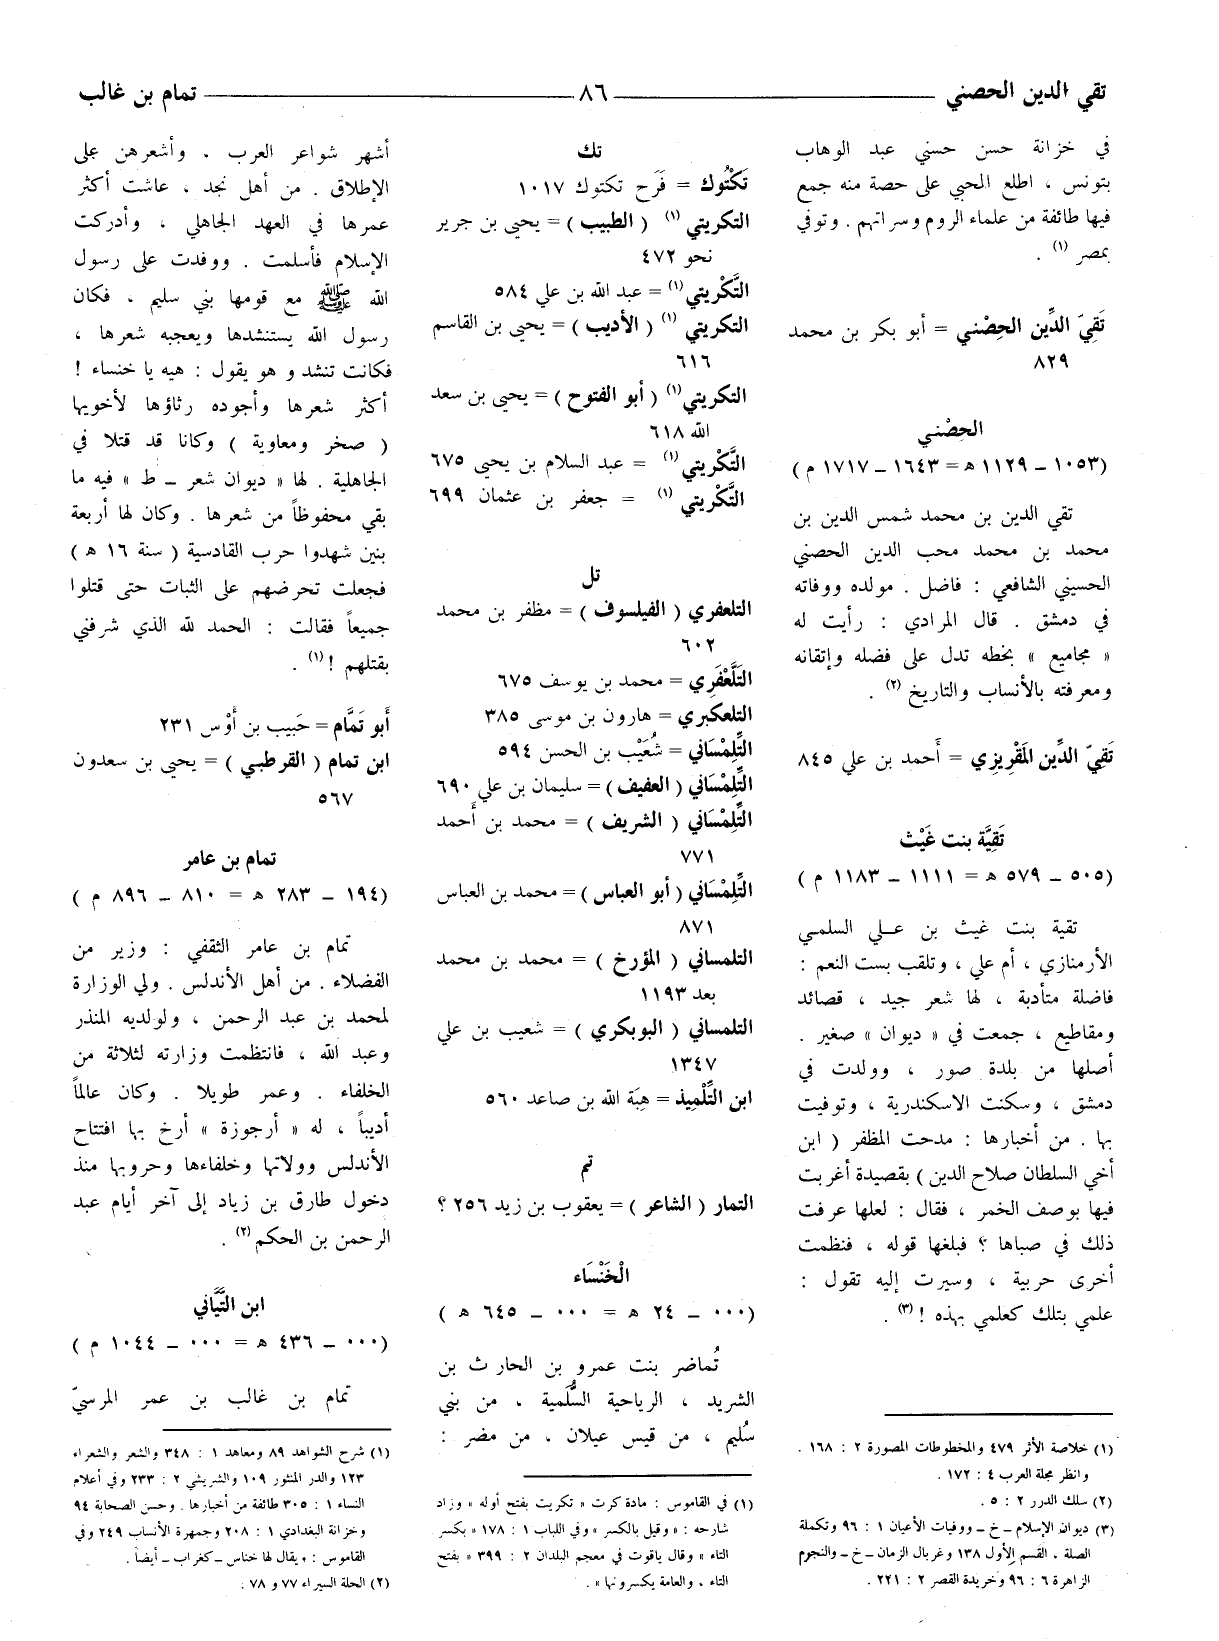 تقي الدين الحصني
٨٦
تمام بن غالب
في خزانة حسن حسني عبد الوهاب
بتونس ، اطلع المحبي على حصة منه جمع
فيها طائفة من علماء الروم وسراتهم . وتوفي
بمصر (١) .
تَقِيّ الدِّين الحِصْني = أبو بكر بن محمد
٨٢٩
الحِصْني
(١٠٥٣ – ١١٢٩ ه = ١٦٤٣ – ١٧١٧ م )
تقي الدين بن محمد شمس الدين بن
محمد بن محمد محب الدين الحصني
الحسيني الشافعي : فاضل . مولده ووفاته
في دمشق . قال المرادي : رأيت له
« مجاميع » بخطه تدل على فضله وإتقانه
ومعرفته بالأنساب والتاريخ (٢) .
تَقِيّ الدِّين المَقْرِيزي = أَحمد بن علي ٨٤٥
تَقِيَّة بنت غَيْث
(٥٠٥ – ٥٧٩ ه = ١١١١ – ١١٨٣ م )
تقية بنت غيث بن علي السلمي
الأرمنازي ، أم علي ، وتلقب بست النعم :
فاضلة متأدبة ، لها شعر جيد ، قصائد
ومقاطيع ، جمعت في « ديوان » صغير .
أصلها من بلدة صور ، وولدت في
دمشق ، وسكنت الاسكندرية ، وتوفيت
بها . من أخبارها : مدحت المظفر ( ابن
أخي السلطان صلاح الدين ) بقصيدة أغربت
فيها بوصف الخمر ، فقال : لعلها عرفت
ذلك في صباها ؟ فبلغها قوله ، فنظمت
أخرى حربية ، وسيرت إليه تقول :
علمي بتلك كعلمي بهذه ! (٣) .
(١) خلاصة الأثر ٤٧٩ والمخطوطات المصورة ٢ : ١٦٨ .
وانظر مجلة العرب ٤ : ١٧٢ .
(٢) سلك الدرر ٢ : ٥ .
(٣) ديوان الإسلام – خ – ووفيات الأعيان ١ : ٩٦ وتكملة
الصلة . القسم الأول ١٣٨ وغربال الزمان – خ – والنجوم
الزاهرة ٦ : ٩٦ وخريدة القصر ٢ : ٢٢١ .
تك
تَكْتُوك = فَرَح تكتوك ١٠١٧
التكريتي (١) ( الطبيب ) = يحيى بن جرير
نحو ٤٧٢
التَّكْريتي (١) = عبد الله بن علي ٥٨٤
التكريتي (١) ( الأديب ) = يحيى بن القاسم
٦١٦
التكريتي (١) ( أبو الفتوح ) = يحيى بن سعد
الله ٦١٨
التَّكْريتي (١) = عبد السلام بن يحيى ٦٧٥
التَّكْريتي (١) = جعفر بن عثمان ٦٩٩
تل
التلعفري ( الفيلسوف ) = مظفر بن محمد
٦٠٢
التَّلَّعْفَرِي = محمد بن يوسف ٦٧٥
التلعكبري = هارون بن موسى ٣٨٥
التِّلِمْسَاني = شُعَيْب بن الحسن ٥٩٤
التِّلِمْسَاني ( العفيف ) = سليمان بن علي ٦٩٠
التِّلِمْسَاني ( الشريف ) = محمد بن أَحمد
٧٧١
التِّلِمْسَاني ( أبو العباس ) = محمد بن العباس
٨٧١
التلمساني ( المؤرخ ) = محمد بن محمد
بعد ١١٩٣
التلمساني ( البوبكري ) = شعيب بن علي
١٣٤٧
ابن التِّلْمِيذ = هِبَة الله بن صاعد ٥٦٠
تم
التمار ( الشاعر ) = يعقوب بن زيد ٢٥٦ ؟
الْخَنْسَاء
(٠٠٠ – ٢٤ ه = ٠٠٠ – ٦٤٥ ه )
تُماضر بنت عمرو بن الحارث بن
الشريد ، الرياحية السُّلمية ، من بني
سُليم ، من قيس عيلان ، من مضر :
(١) في القاموس : مادة كرت « تكريت بفتح أوله » وزاد
شارحه : « وقيل بالكسر » وفي اللباب ١ : ١٧٨ « بكسر
التاء » وقال ياقوت في معجم البلدان ٢ : ٣٩٩ « بفتح
التاء ، والعامة يكسرونها » .
أشهر شواعر العرب ، وأشعرهن على
الإطلاق . من أهل نجد ، عاشت أكثر
عمرها في العهد الجاهلي ، وأدركت
الإسلام فأسلمت . ووفدت على رسول
الله ﷺ مع قومها بني سليم ، فكان
رسول الله يستنشدها ويعجبه شعرها ،
فكانت تنشد و هو يقول : هيه يا خنساء !
أكثر شعرها وأجوده رثاؤها لأخويها
( صخر ومعاوية ) وكانا قد قتلا في
الجاهلية . لها « ديوان شعر – ط » فيه ما
بقي محفوظاً من شعرها . وكان لها أربعة
بنين شهدوا حرب القادسية ( سنة ١٦ ه )
فجعلت تحرضهم على الثبات حتى قتلوا
جميعاً فقالت : الحمد لله الذي شرفني
بقتلهم ! (١) .
أَبو تَمَّام = حَبيب بن أَوْس ٢٣١
ابن تمام ( القرطبي ) = يحيى بن سعدون
٥٦٧
تمام بن عامر
(١٩٤ – ٢٨٣ ه = ٨١٠ – ٨٩٦ م )
تمام بن عامر الثقفي : وزير من
الفضلاء . من أهل الأندلس . ولي الوزارة
لمحمد بن عبد الرحمن ، ولولديه المنذر
وعبد الله ، فانتظمت وزارته لثلاثة من
الخلفاء . وعمر طويلا . وكان عالماً
أديباً ، له « أرجوزة » أرخ بها افتتاح
الأندلس وولاتها وخلفاءها وحروبها منذ
دخول طارق بن زياد إلى آخر أيام عبد
الرحمن بن الحكم (٢) .
ابن التَّيَّاني
(٠٠٠ – ٤٣٦ ه = ٠٠٠ – ١٠٤٤ م )
تمام بن غالب بن عمر المرسيّ
(١) شرح الشواهد ٨٩ ومعاهد ١ : ٣٤٨ والشعر والشعراء
١٢٣ والدر المنثور ١٠٩ والشريشي ٢ : ٢٣٣ وفي أعلام
النساء ١ : ٣٠٥ طائفة من أخبارها . وحسن الصحابة ٩٤
وخزانة البغدادي ١ : ٢٠٨ وجمهرة الأنساب ٢٤٩ وفي
القاموس : « يقال لها خناس – كغراب – أيضاً .
(٢) الحلة السيراء ٧٧ و ٧٨ .